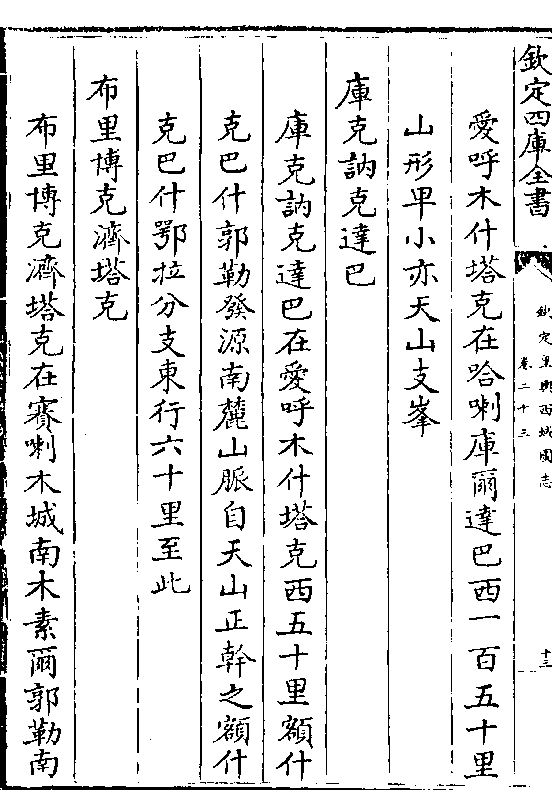 欽定四庫全書
欽定皇輿西域圖志
卷二十三
十三
愛呼木什塔克在哈喇庫爾達巴西一百五十里
山形卑小亦天山支峯
庫克訥克達巴
庫克訥克達巴在愛呼木什塔克西五十里額什
克巴什郭勒發源南麓山脈自天山正幹之額什
克巴什鄂拉分支東行六十里至此
布里博克濟塔克
布里博克濟塔克在賽喇木城南木素爾郭勒南